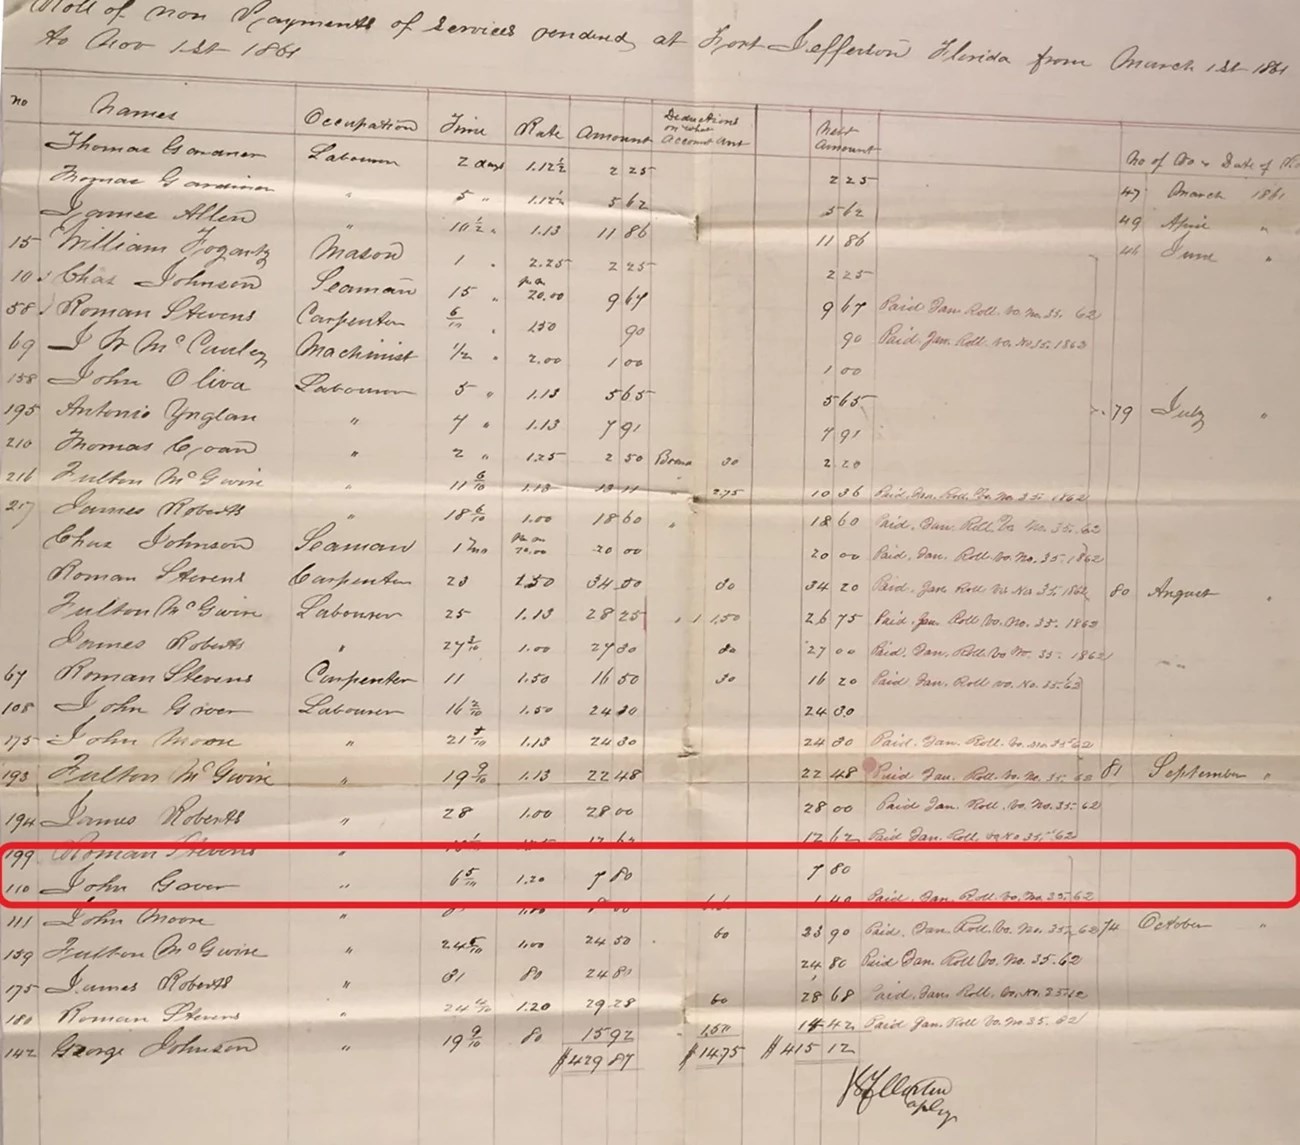 Roll of non Payments of Services rendered at Fort Jefferson Florida from March 1st 1861
to Nov 1st 1861
no Names Occupation Time Rate Amount Deductions on what Account Amt Nett Amount No of Vo & Date of
Thomas Gardner Labourer 2 days 1.12½ 2 25 2 25 47 March 1861
Thomas Gardiner " 5 " 1.12½ 5 62 5 62 49 April "
James Allen " 10½ " 1.13 11 86 11 86 46 June "
15 William Fogarty Mason 1 " 2.25 2 25 2 25
10 Chas Johnson Seaman 15 " 20.00 9 67 9 67 Paid Jan. Roll. Vo. No. 35. 62
58 Roman Stevens Carpenter 6/10 " 150 90 90 Paid Jan. Roll. Vo. No 35. 1862
69 J W McCauley Machinist 1/2 " 2.00 1 00 1 00
158 John Oliva Labourer 5 " 1.13 5 65 5 65
195 Antonio Ynglan " 7 " 1.13 7 91 7 91 79 July "
210 Thomas " 2 " 1.25 2 50 30 2 20
216 Fulton McGwire " 11 6/10 1.13 13 11 " 2.75 10 36 Paid. Jan. Roll. Vo. No. 35. 1862
217 James Roberts " 18 6/10 1.00 18 60 " 18 60 Paid. Jan. Roll. Vo. No. 35. 62
Chas Johnson Seaman 1 mo 20.00 20 00 20 00 Paid. Jan. Roll. Vo. No. 35. 1862
Roman Stevens Carpenter 23 1.50 34.50 30 34 20 Paid. Jan. Roll Vo. No. 35. 1862 80 August "
Fulton McGwire Labourer 25 1.13 28 25 " 1.50 26 75 Paid. Jan. Roll Vo. No. 35. 1862
James Roberts " 27 3/10 1.00 27 30 30 27 00 Paid. Jan. Roll Vo No. 35. 1862
67 Roman Stevens Carpenter 11 1.50 16 50 30 16 20 Paid Jan. Roll Vo. No. 35. 62
108 John Gover Labourer 16 2/10 1.50 24 30 24 30
175 John Moore " 21 5/10 1.13 24 30 24 30 Paid. Jan. Roll. Vo. No 35. 62
193 Fulton McGwire " 19 9/10 1.13 22 48 22 48 Paid Jan. Roll. Vo. No. 35. 62 81 September "
194 James Roberts " 28 1.00 28 00 28 00 Paid Jan. Roll. Vo. No. 35. 62
199 Roman Stevens " 12 62 12 62 Paid Jan. Roll. Vo No 35. 62
110 John Gover " 6 5/10 1.20 7 80 7 80
111 John Moore " 1 40 Paid. Jan. Roll. Vo. No. 35. 62
159 Fulton McGwire " 24 5/10 1.00 24 50 60 23 90 Paid. Jan. Roll. Vo. No. 35. 62 74 October "
175 James Roberts " 31 80 24 80 24 80 Paid Jan. Roll Vo. No. 35. 62
180 Roman Stevens " 24 4/10 1.20 29.28 60 28 68 Paid. Jan. Roll. Vo. No. 35. 62
142 George Johnson " 19 9/10 80 15 92 1.50 14 42 Paid Jan. Roll. Vo. No 35. 62
$429 87 $14.75 $415 12